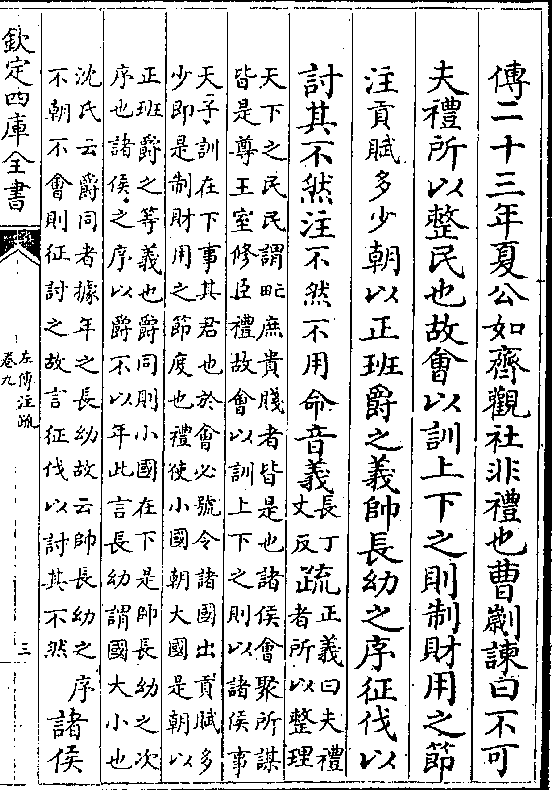 傳二十三年夏公如齊觀社非禮也曹劌諫曰不可
夫禮所以整民也故會以訓上下之則制財用之節
注貢賦多少朝以正班爵之義帥長幼之序征伐以
討其不然注不然不用命音義長丁丈反疏正義曰夫禮者所以整理
天下之民民謂甿庶貴賤者皆是也諸侯會聚所謀
皆是尊王室修臣禮故會以訓上下之則以諸侯事
天子訓在下事其君也於會必號令諸國出貢賦多
少即是制財用之節度也禮使小國朝大國是朝以
正班爵之等義也爵同則小國在下是帥長幼之次
序也諸侯之序以爵不以年此言長幼謂國大小也
沈氏云爵同者據年之長幼故云帥長幼之序
不朝不會則征討之故言征伐以討其不然
諸侯
欽定四庫全書
左傳注疏
卷九
三